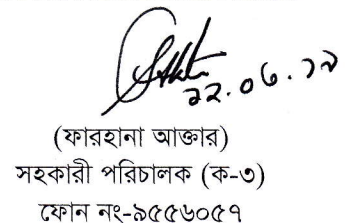 ২২.০৬.১৯
(ফারহানা আক্তার)
সহকারী পরিচালক (ক-৩)
ফোন নং-৯৫৫৬০৫৭